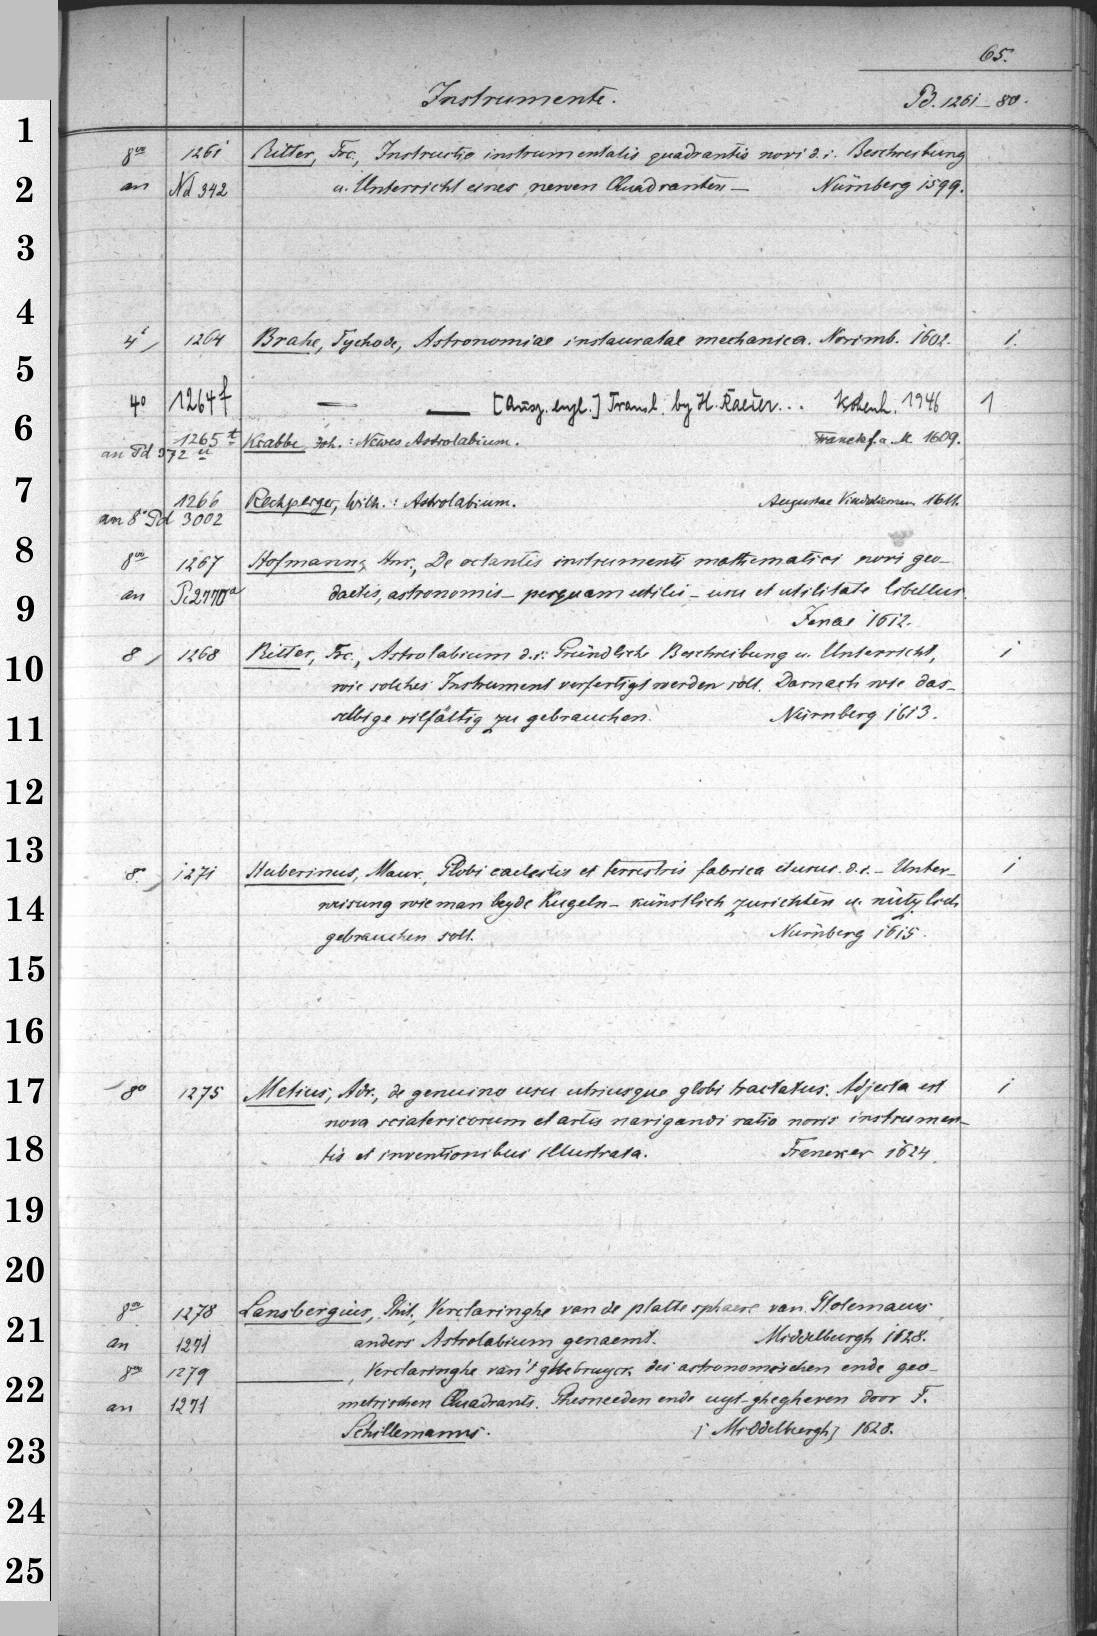 65.
Instrumente. Pd. 1261-80.
1
8vo 1261 Ritter, Frc., Instructio instrumentalis quadrantis novi d. i. Beschreibung
2
an Nd 342 u. Unterricht eines newen Quadranten — Nürnberg 1599.
3
4
4° 1264 Brahe, Tycho de, Astronomiae instauratae mechanica. Norimb. 1602. 1.
5
4° 1264f — — [Ausz. engl.] Transl. by H. Raeder... Kbenh. 1946 1
6
1265t Krabbe, Joh.: Newes Astrolabium. Franckf. a. M. 1609.
an Pd 972 u
7
1266 Rechperger, Wilh.: Astrolabium. Augustae Vindelicorum 1611.
an 8° Pd 3002
8
8vo 1267 Hofmann, Hnr., De octantis instrumenti mathematici novi geo-
9
an Pc2770a daetis, astronomis - perquam utilis - usu et utilitate libellus.
Jenae 1612.
10
8 1268 Ritter, Frc., Astrolabium d. i. Gründliche Beschreibung u. Unterricht, 1
wie solches Instrument verfertigt werden soll. Darnach wie das-
11
selbige vilfältig zu gebrauchen. Nürnberg 1613.
12
13
8° 1271 Huberinus, Maur., Globi caelestis et terrestris fabrica et usus. d. i. - Unter- 1
14
weisung wie man beyde Kugeln - künstlich zurichten u. nützlich
gebrauchen soll. Nürnberg 1615.
15
16
17
8° 1275 Metius, Adr., de genuino usu utriusque globi tractatus. Adjecta est 1
nova sciatericorum et artis navigandi ratio novis instrumen-
18
tis et inventionibus illustrata. Franeker 1624.
19
20
8vo 1278 Lansbergius, Phil., Verclaringhe van de platte sphaere van Ptolemaeus
21
an 1271 anders Astrolabium genaemt. Middelburgh 1628.
8vo 1279 ———, Verclaringhe van't ghebruyck des astronomischen ende geo-
22
an 1271 metrischen Quadrants. Ghesneeden ende uyt-ghegheven door F.
Schillemanns. [Middelburgh] 1628.
23
24
25